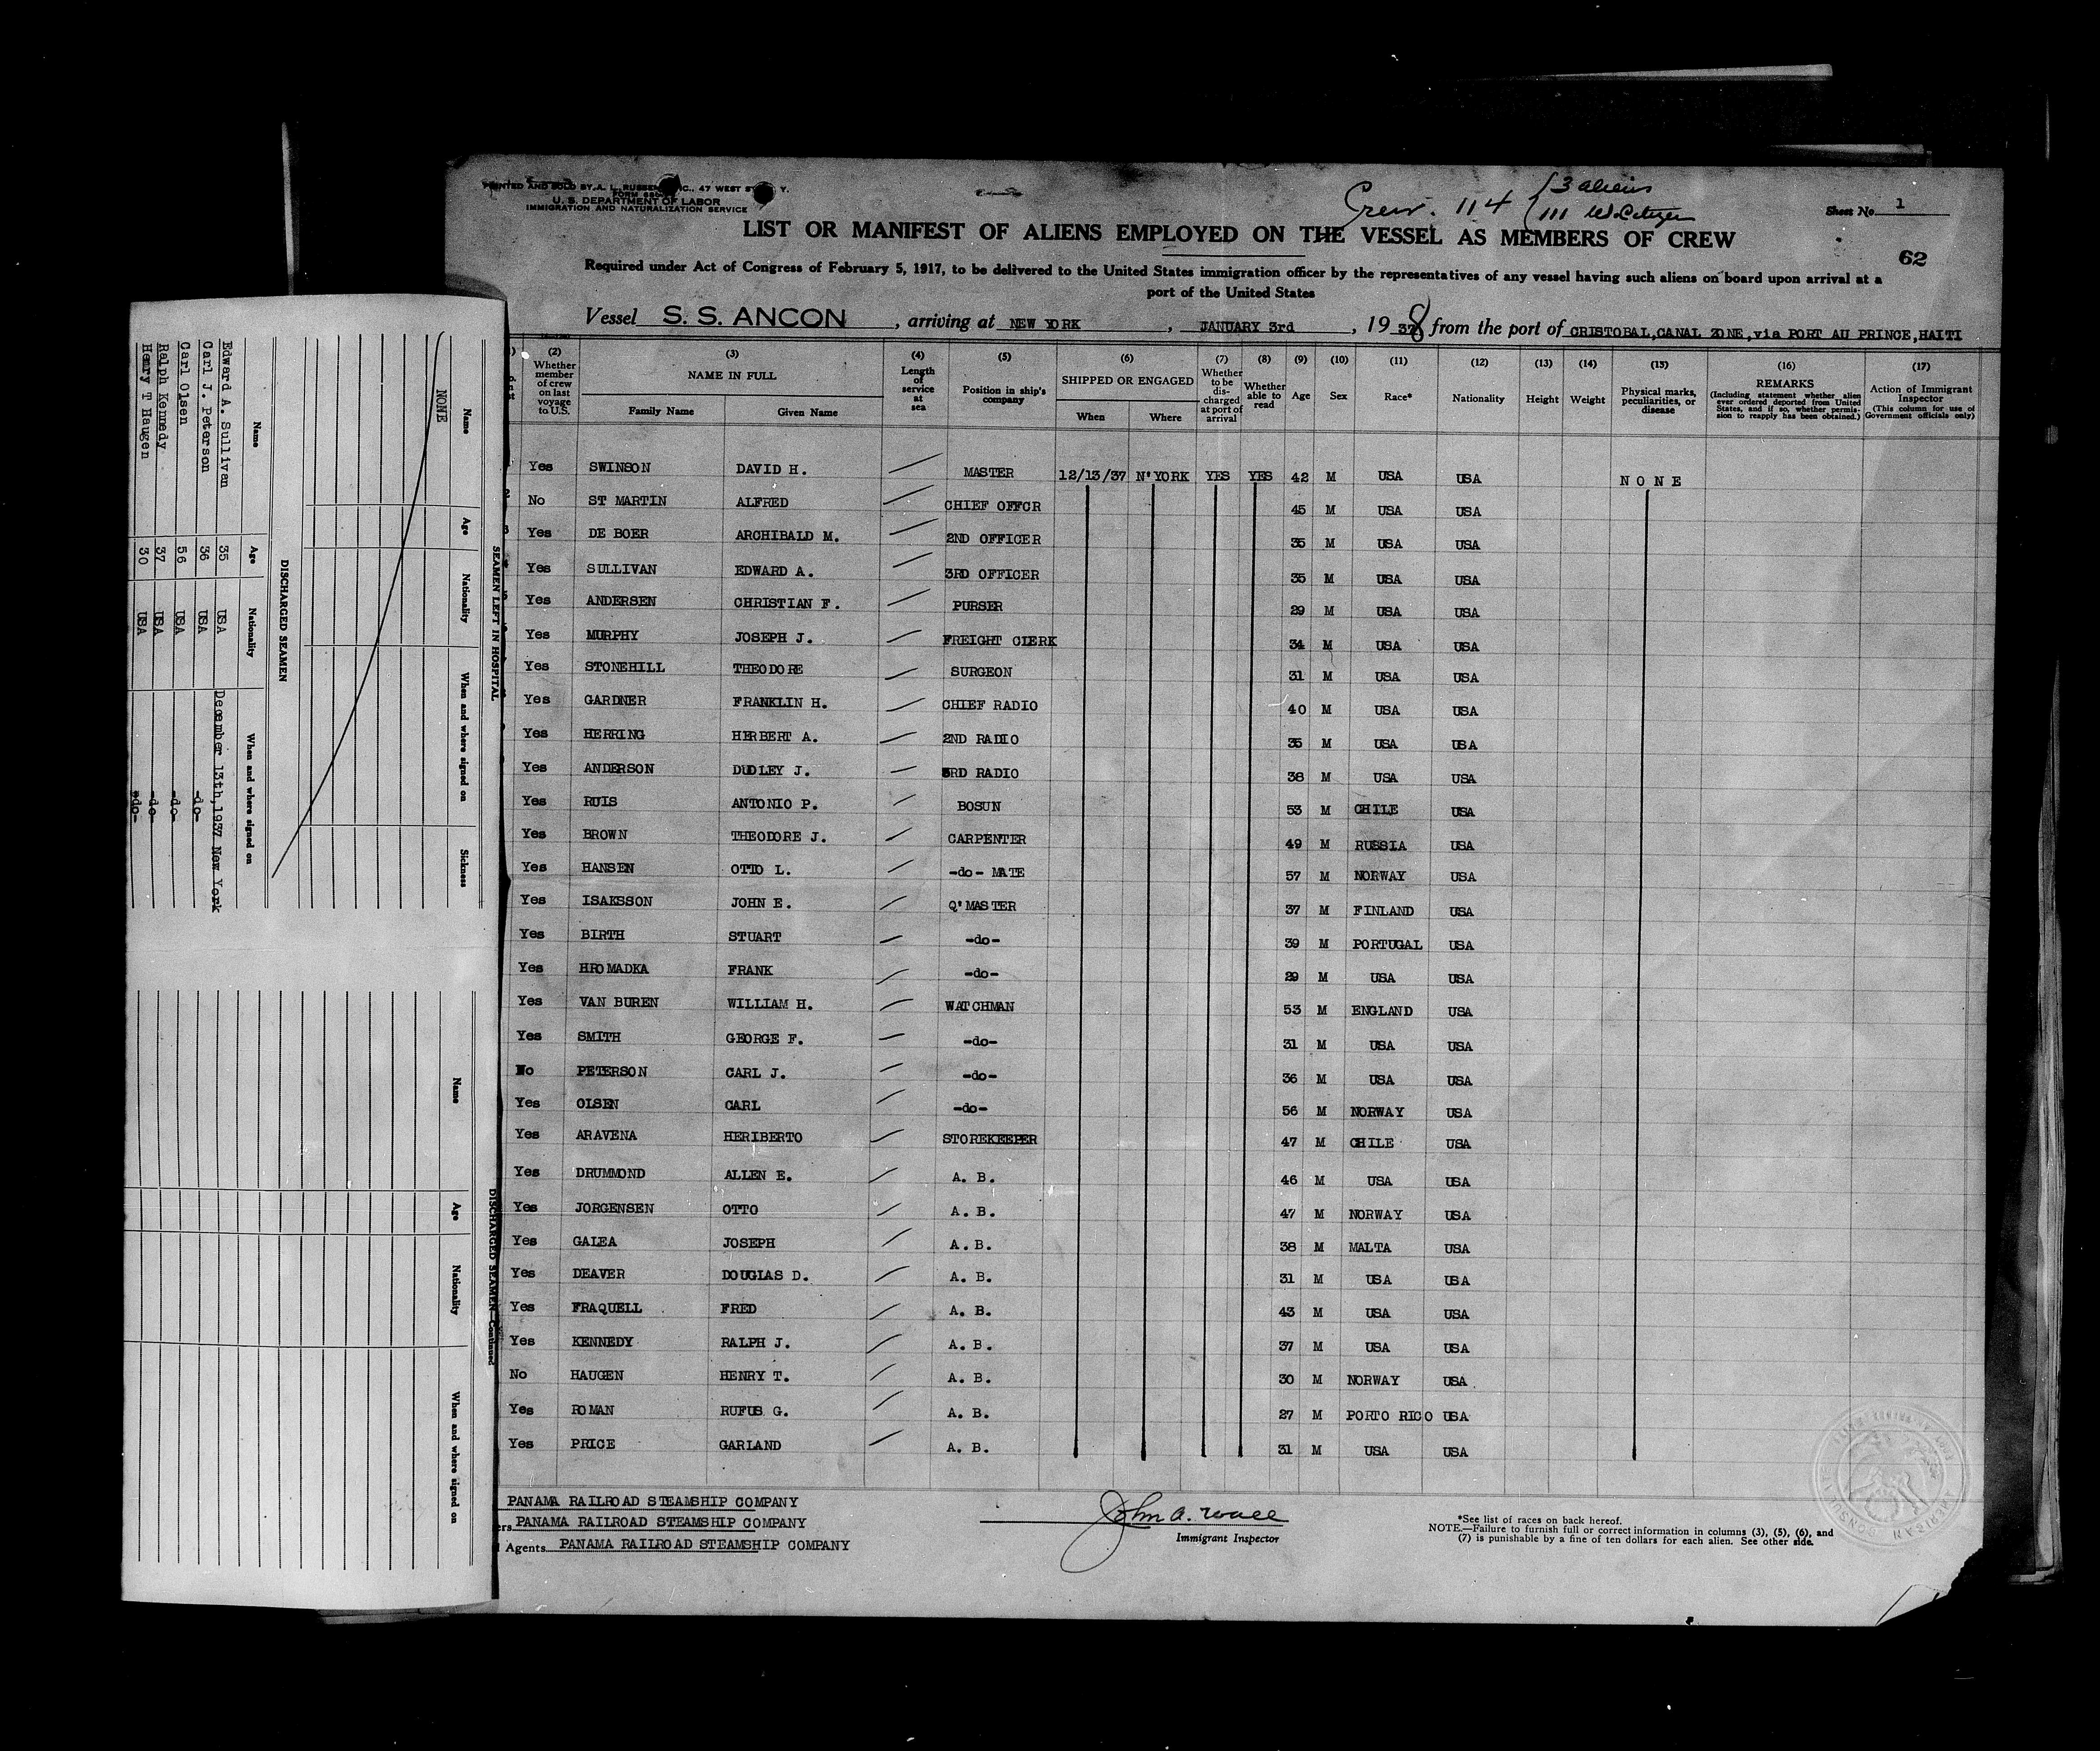 PRINTED AND SOLD BY A. L. RUSSELL, INC., 47 WEST ST., N. Y.
U. S. DEPARTMENT OF LABOR
IMMIGRATION AND NATURALIZATION SERVICE
Crew. 114 { 3 aliens
111 U.S. Citizen
Sheet No. 1
LIST OR MANIFEST OF ALIENS EMPLOYED ON THE VESSEL AS MEMBERS OF CREW
62
Required under Act of Congress of February 5, 1917, to be delivered to the United States immigration officer by the representatives of any vessel having such aliens on board upon arrival at a
port of the United States
Vessel S. S. ANCON, arriving at NEW YORK, JANUARY 3rd, 1938 from the port of CRISTOBAL,CANAL ZONE,via PORT AU PRINCE,HAITI
(2) Whether member of crew on last voyage to U.S. (3) NAME IN FULL Family Name Given Name (4) Length of service at sea (5) Position in ship's company (6) SHIPPED OR ENGAGED When Where (7) Whether to be discharged at port of arrival (8) Whether able to read (9) Age (10) Sex (11) Race* (12) Nationality (13) Height (14) Weight (15) Physical marks, peculiarities, or disease (16) REMARKS (Including statement whether alien ever ordered deported from United States, and if so, whether permission to reapply has been obtained.) (17) Action of Immigrant Inspector (This column for use of Government officials only)
Yes SWINSON DAVID H. MASTER 12/13/37 N'YORK YES YES 42 M USA USA NONE
No ST MARTIN ALFRED CHIEF OFFCR 45 M USA USA
Yes DE BOER ARCHIBALD M. 2ND OFFICER 35 M USA USA
Yes SULLIVAN EDWARD A. 3RD OFFICER 35 M USA USA
Yes ANDERSEN CHRISTIAN F. PURSER 29 M USA USA
Yes MURPHY JOSEPH J. FREIGHT CLERK 34 M USA USA
Yes STONEHILL THEODORE SURGEON 31 M USA USA
Yes GARDNER FRANKLIN H. CHIEF RADIO 40 M USA USA
Yes HERRING HERBERT A. 2ND RADIO 35 M USA USA
Yes ANDERSON DUDLEY J. 3RD RADIO 38 M USA USA
Yes RUIS ANTONIO P. BOSUN 53 M CHILE USA
Yes BROWN THEODORE J. CARPENTER 49 M RUSSIA USA
Yes HANSEN OTTO L. -do- MATE 57 M NORWAY USA
Yes ISAKSSON JOHN E. Q'MASTER 37 M FINLAND USA
Yes BIRTH STUART -do- 39 M PORTUGAL USA
Yes HROMADKA FRANK -do- 29 M USA USA
Yes VAN BUREN WILLIAM H. WATCHMAN 53 M ENGLAND USA
Yes SMITH GEORGE F. -do- 31 M USA USA
No PETERSON CARL J. -do- 36 M USA USA
Yes OLSEN CARL -do- 56 M NORWAY USA
Yes ARAVENA HERIBERTO STOREKEEPER 47 M CHILE USA
Yes DRUMMOND ALLEN E. A. B. 46 M USA USA
Yes JORGENSEN OTTO A. B. 47 M NORWAY USA
Yes GALEA JOSEPH A. B. 38 M MALTA USA
Yes DEAVER DOUGLAS D. A. B. 31 M USA USA
Yes FRAQUELL FRED A. B. 43 M USA USA
Yes KENNEDY RALPH J. A. B. 37 M USA USA
No HAUGEN HENRY T. A. B. 30 M NORWAY USA
Yes ROMAN RUFUS G. A. B. 27 M PORTO RICO USA
Yes PRICE GARLAND A. B. 31 M USA USA
PANAMA RAILROAD STEAMSHIP COMPANY
PANAMA RAILROAD STEAMSHIP COMPANY
Agents PANAMA RAILROAD STEAMSHIP COMPANY
John A. Wall
Immigrant Inspector
*See list of races on back hereof.
NOTE.—Failure to furnish full or correct information in columns (3), (5), (6), and
(7) is punishable by a fine of ten dollars for each alien. See other side.
SEAMEN LEFT IN HOSPITAL
Name Age Nationality When and where signed on Sickness
NONE
DISCHARGED SEAMEN
Name Age Nationality When and where signed on
Edward A. Sullivan 35 USA December 13th,1937 New York
Carl J. Peterson 36 USA -do-
Carl Olsen 56 USA -do-
Ralph Kennedy 37 USA -do-
Henry T Haugen 30 USA -do-
DISCHARGED SEAMEN—Continued
Name Age Nationality When and where signed on